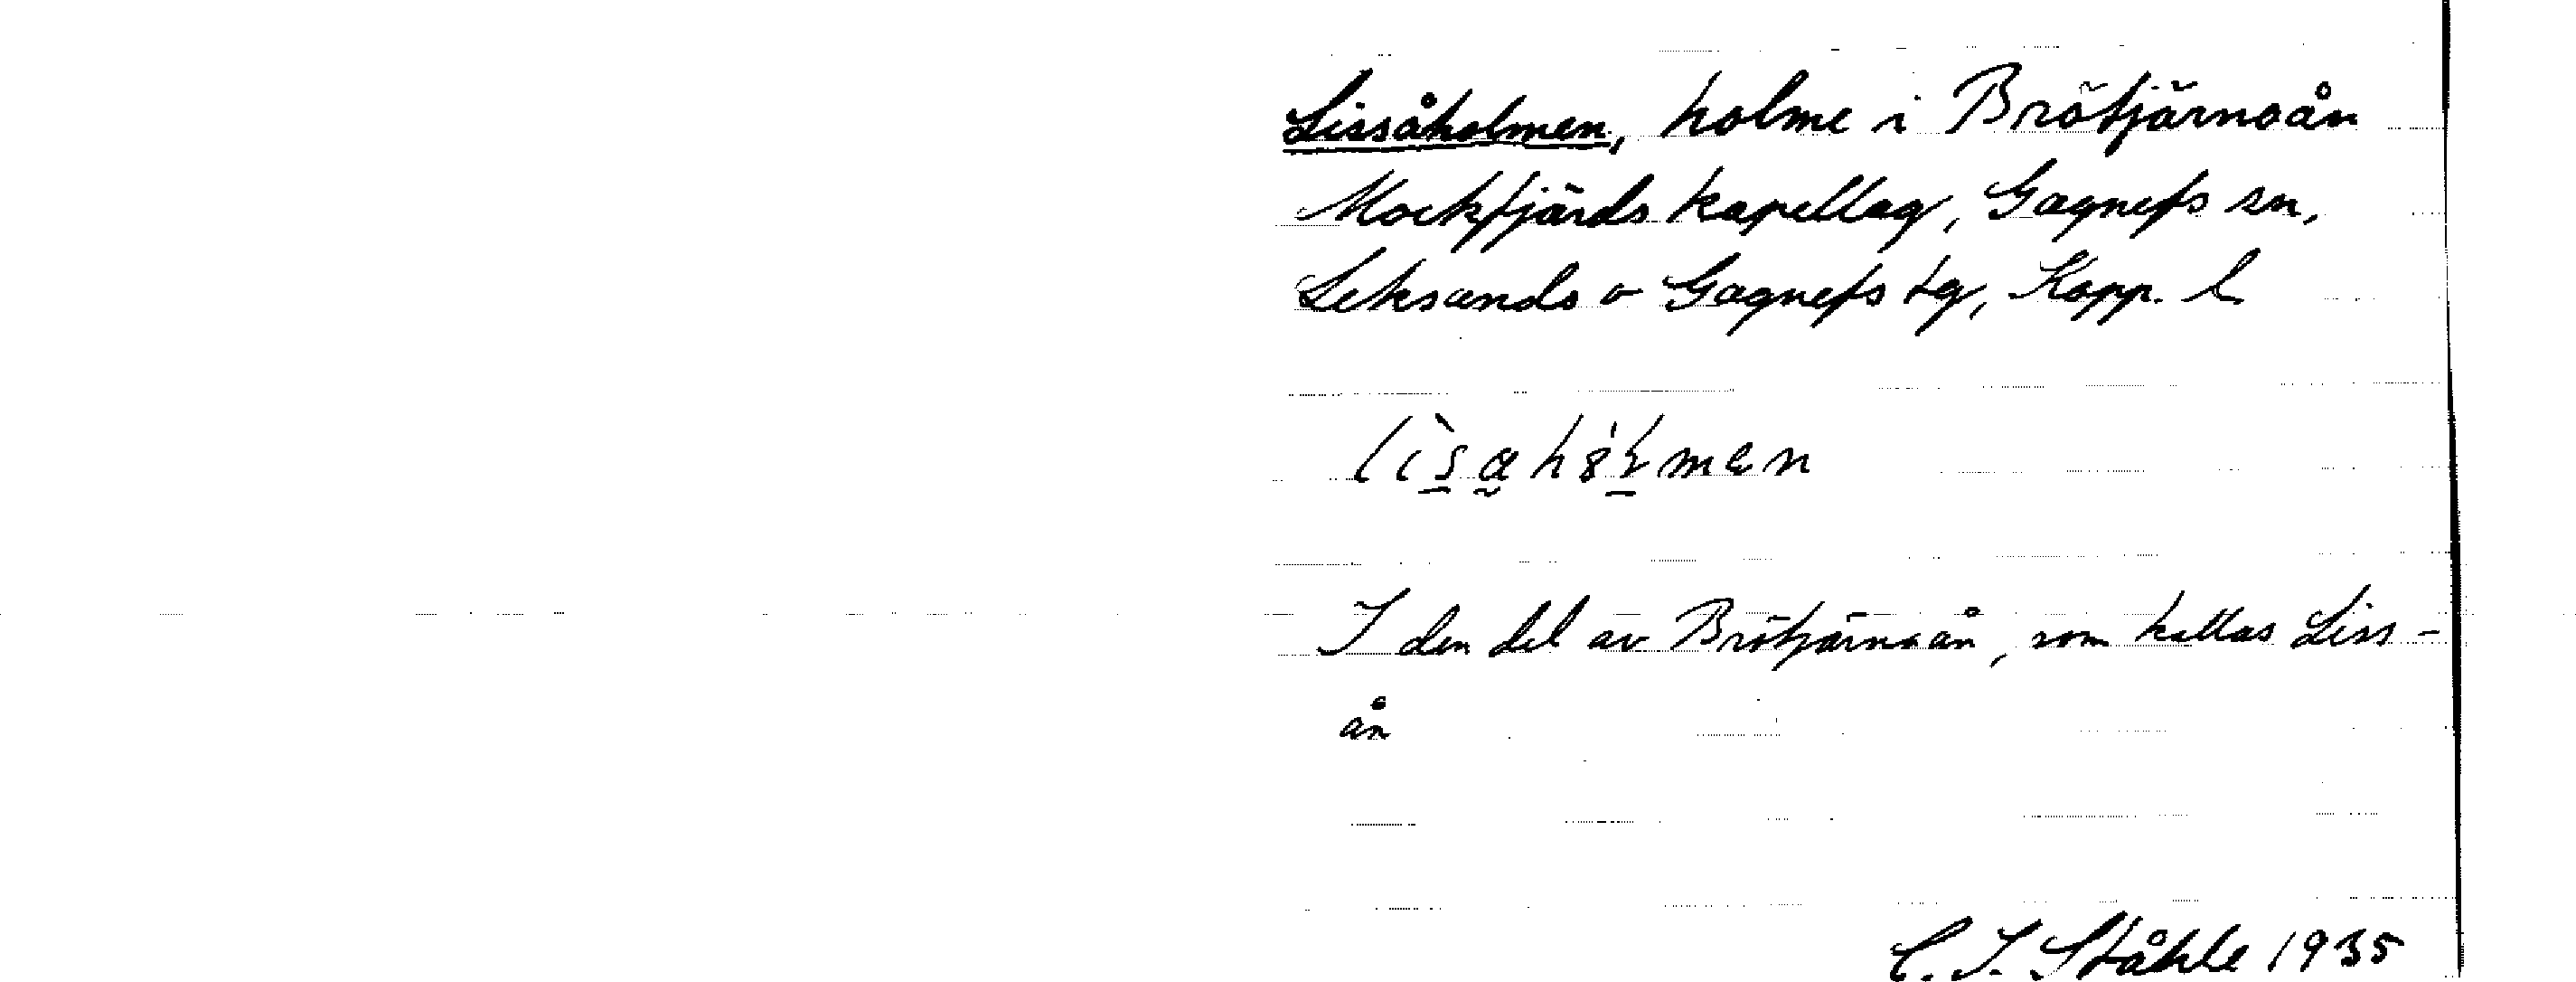 Lissåholmen, holme i Brötjärnaån
Mockfjärds kapellag, Gagnefs sn,
Leksands o Gagnefs tg, Kopp. l.
I den del av Brötjärnaån, som kallas Liss-
ån
C. I. Ståhle 1935